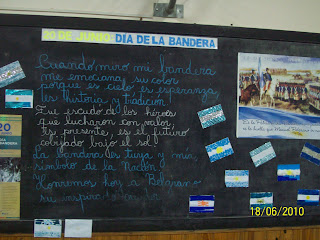 20 DE JUNIO: DÍA DE LA BANDERA
Cuando miro mi bandera
me emociona su color
porque es cielo, es esperanza
es historia y tradición.
Fue escudo de los héroes
que lucharon con valor
es presente, es el futuro
cobijado bajo el sol.
La bandera es tuya y mía
símbolo de la Nación
Honremos hoy a Belgrano
su
20
BANDERA
18/06/2010